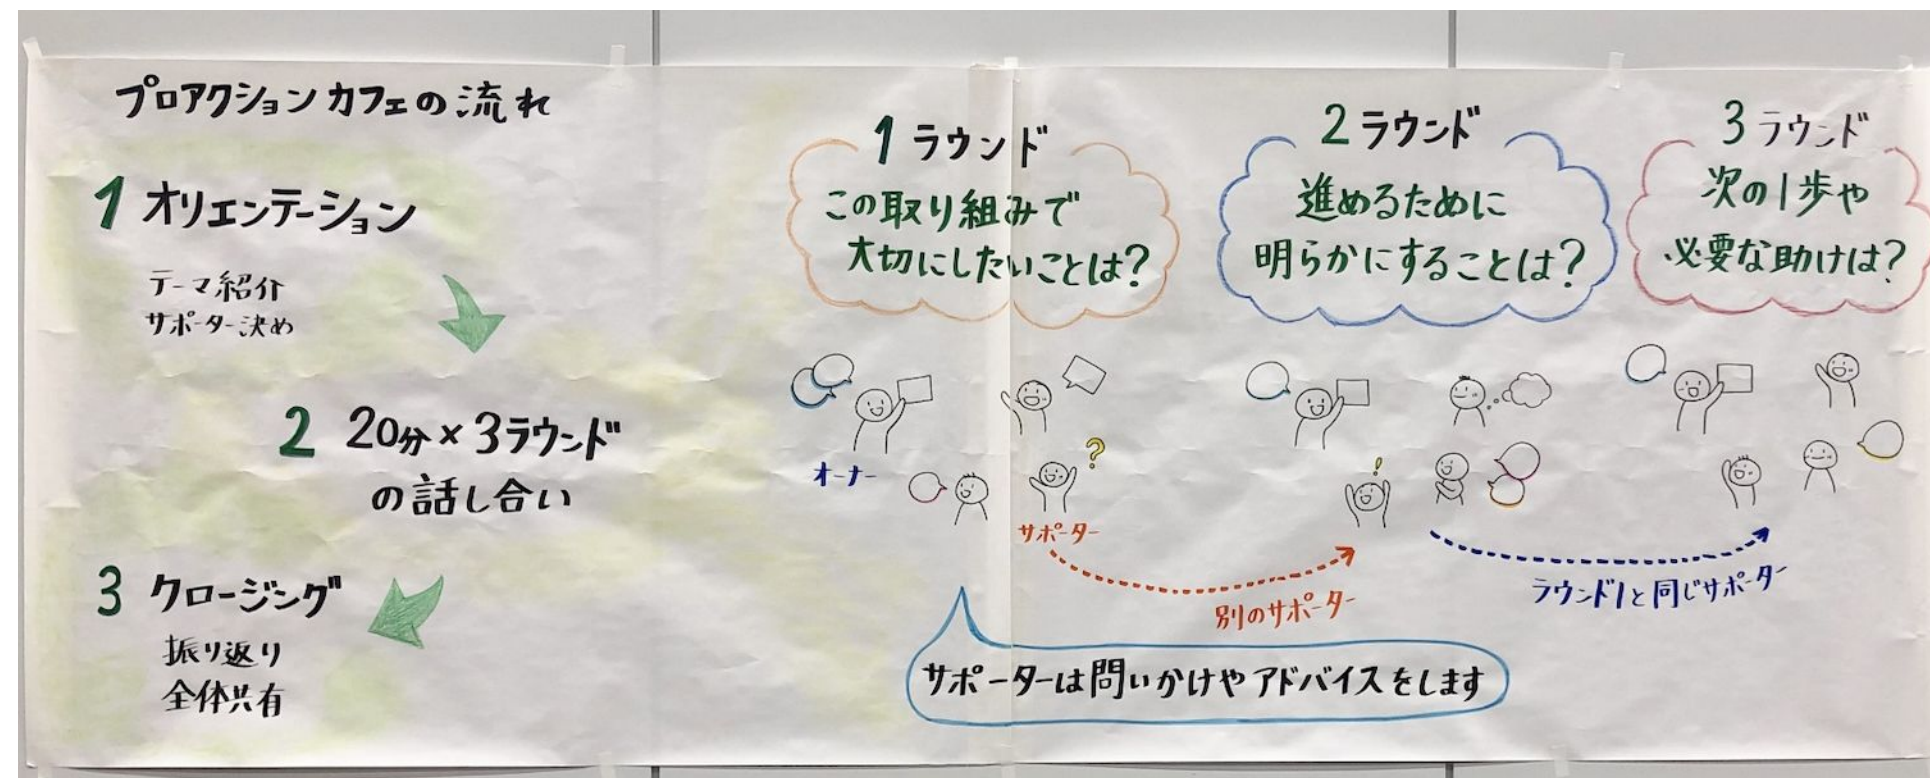 プロアクションカフェの流れ
1 オリエンテーション
テーマ紹介
サポーター決め
2 20分×3ラウンド
の話し合い
3 クロージング
振り返り
全体共有
1 ラウンド
この取り組みで
大切にしたいことは?
2 ラウンド
進めるために
明らかにすることは?
3 ラウンド
次の1歩や
必要な助けは?
オーナー
?
サポーター
!
別のサポーター
ラウンド1と同じサポーター
サポーターは問いかけやアドバイスをします